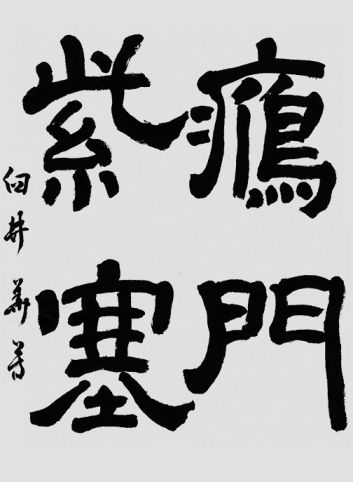 鴈門
紫塞
臼井